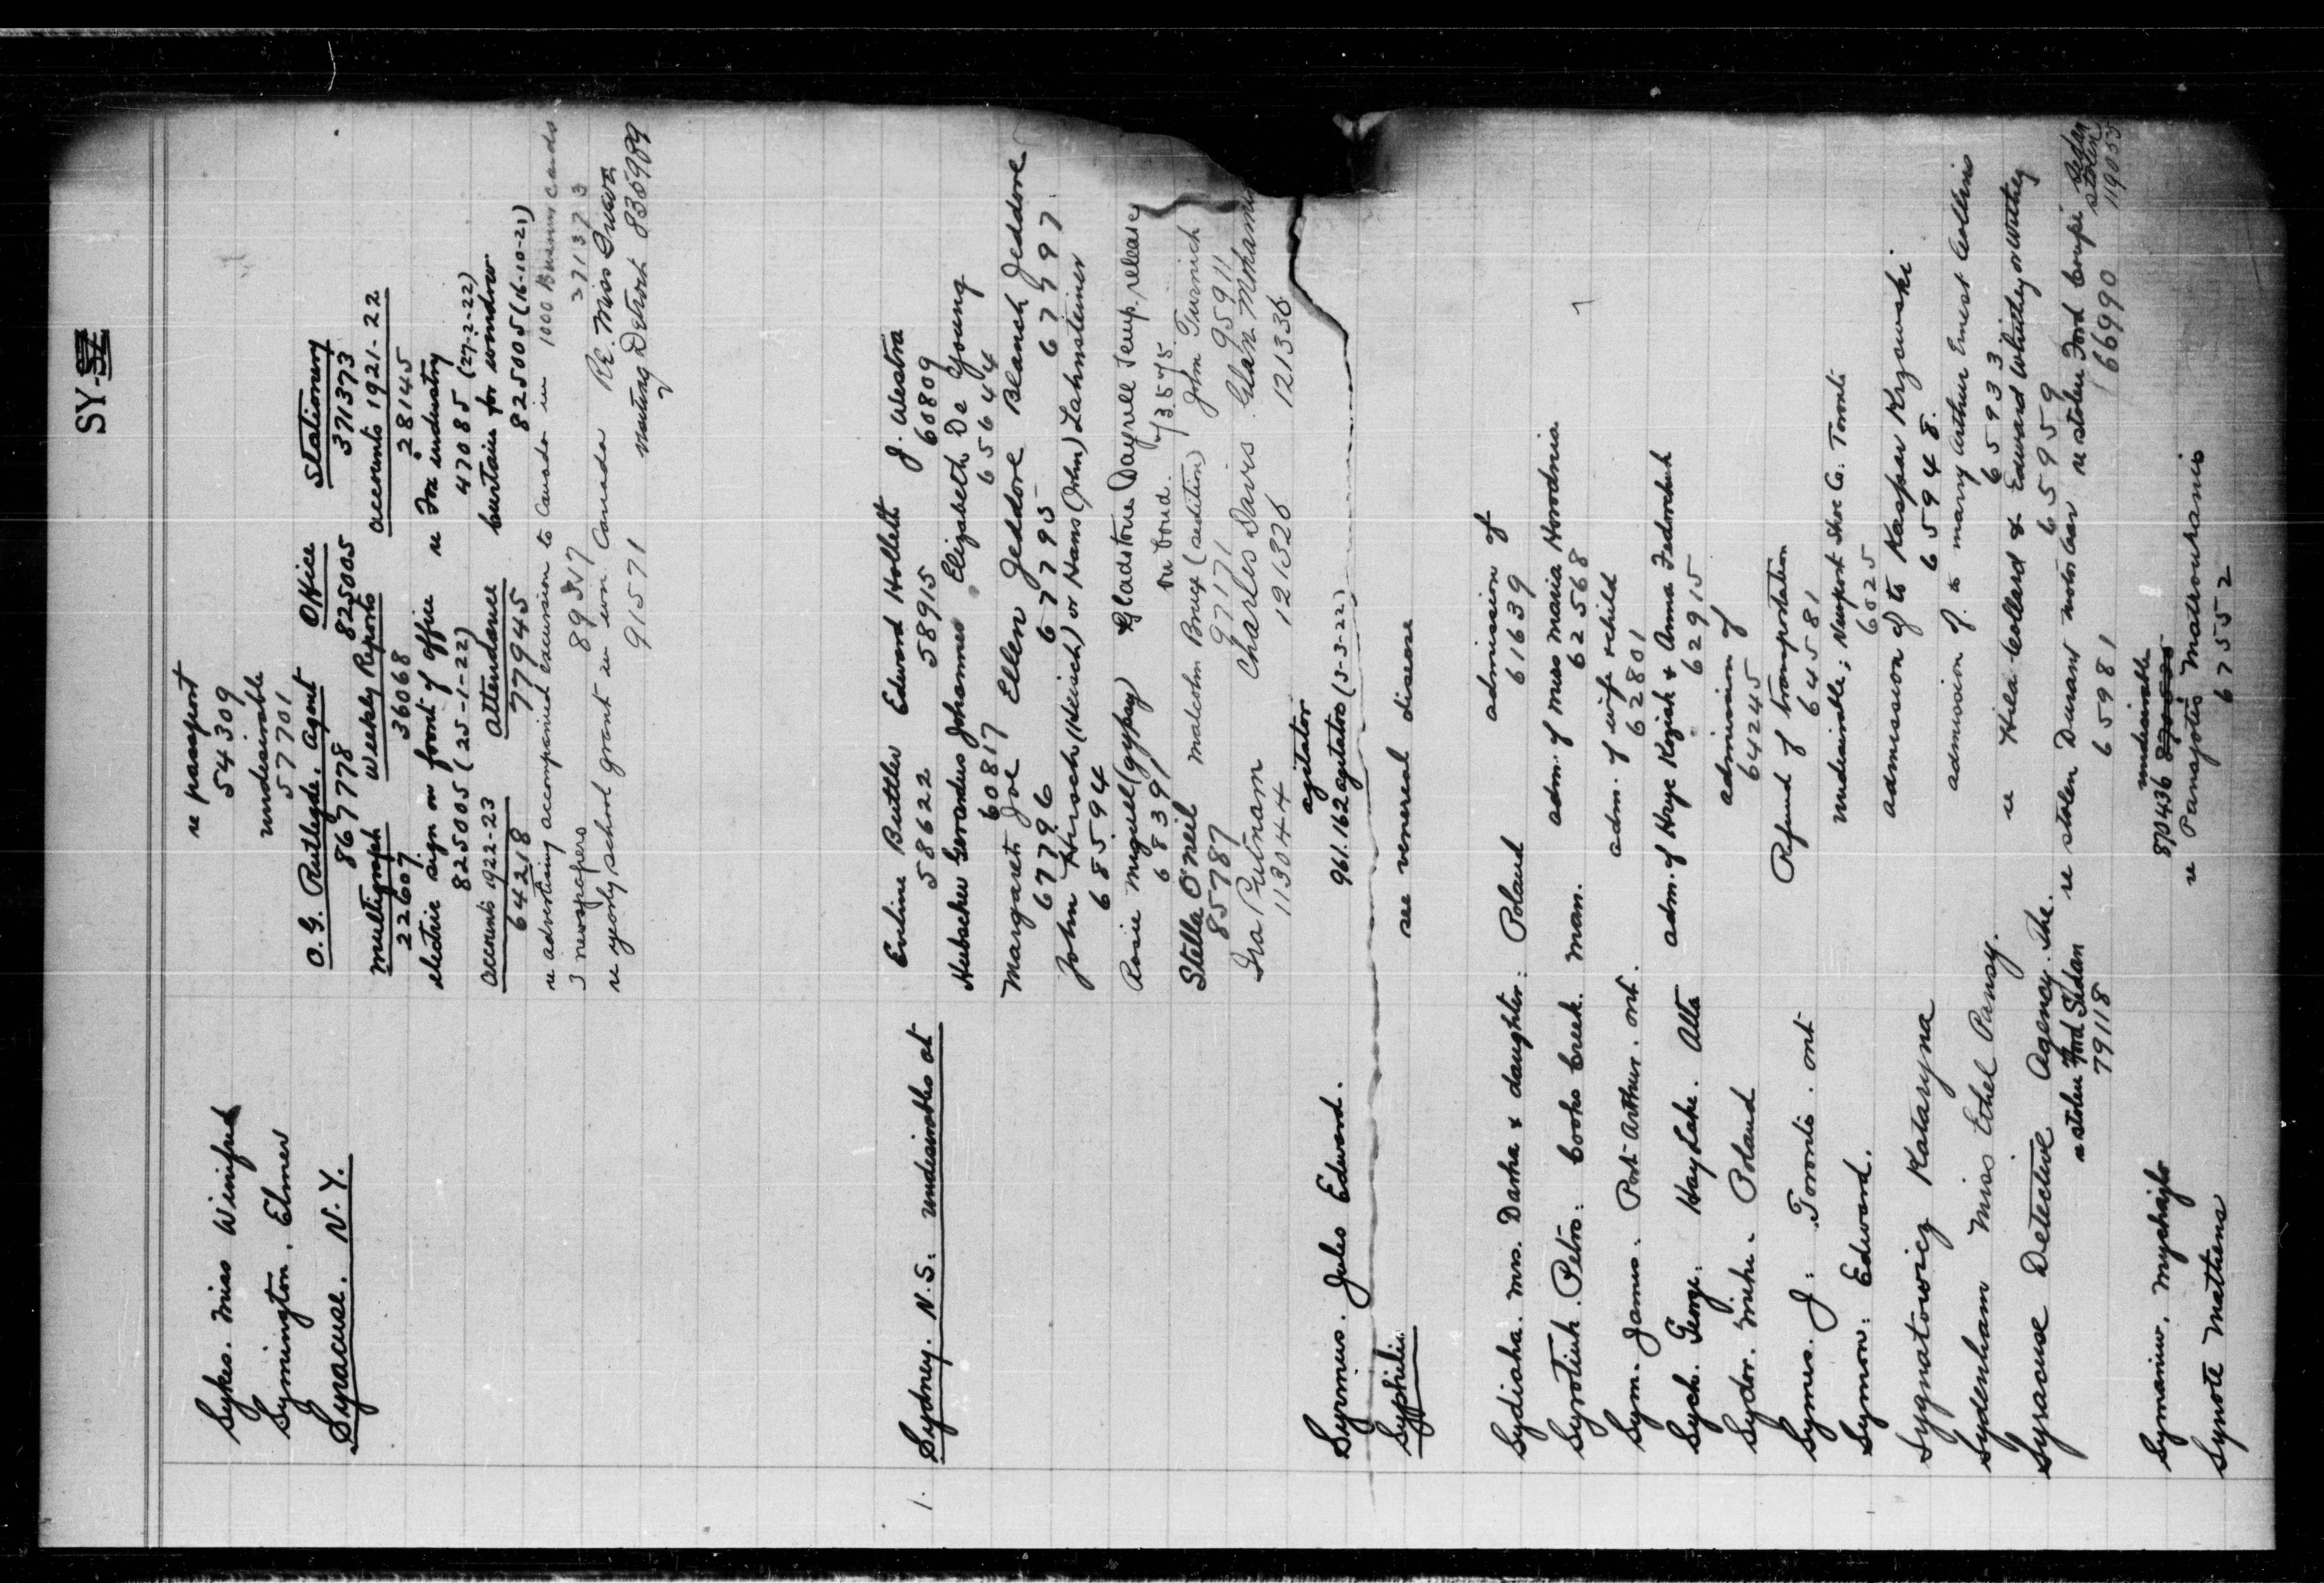 SY-
Sykes. Miss Winifred re passport
54309
Symington. Elmer undesirable
57701
Syracuse. N.Y. O.G. Rutledge. Agent Office Stationery
867778 825005 371373
multigraph Weekly Reports accounts 1921-22
22607 36068 28145
electric sign on front of office re Fox industry
825005 (25-1-22) 47085 (27-2-22)
accounts 1922-23 attendance curtains for window
64218 777945 825005 (16-10-21)
re advertising accompanied excursion to Canada in 1000 Business Cards
3 newspapers 371373
re yearly school grant in wn. Canada RE. Miss
91571 Detroit
1. Sydney. N.S. undesirables at Eveline Butler Edward Hollett J. Westra
58622 58915 60809
Hubacher Gerardus Johannes Elizabeth De Young
60817 656444
Margaret Joe Ellen Jeddore Blanch Jeddore
67796 67795 67797
John Hirsch (Heinsch) or Hans (John) Lahnsteiner
68594
Rosie Miguel (gypsy) Gladstone Dayrell Temp. release
68391 on bond.
Stella O'Neil Malcolm Bruce (sedition) John
85787 97171 95911
Ira Putnam Charles Davis
113044 121326 121336
agitator
Syrmius. Jules Edward. 961.162 agitators (3-3-22)
Syphilis see venereal disease
Sydiaha. Mrs. Darha & daughter. Poland admission of
61639
Syrotiuk. Petro: Cooks Creek. Man. adm. of Miss Maria Horodnia
62568
Sym. James. Port Arthur. Ont. adm. of wife & child
62801
Sych. George. Hay Lake. Alta adm. of Hrye Koziak & Anna Fedorchuk
62915
Sydor. Mike. Poland admission of
64245
Symes. J. Toronto. Ont Refund of transportation
64581
Symon: Edward. undesirable; Newport Shoe Co. Toronto
6025
Sygnatowicz Kataryna admission of to Kaspar Krzewski
65948.
Sydenham Miss Ethel Pansy. admission of to marry Arthur Ernest Collins
65933
Syracuse Detective Agency. The. re Hilda Collard & Edward Whitley or Withey
65959
re stolen Ford Sedan re stolen Durant motor car re stolen Ford Coupe Sedan stolen
79118 65981 669990
Symaniw. Mychajlo 870436 undesirable
Synote Mathena re Panajotis Matrouhanis
67552